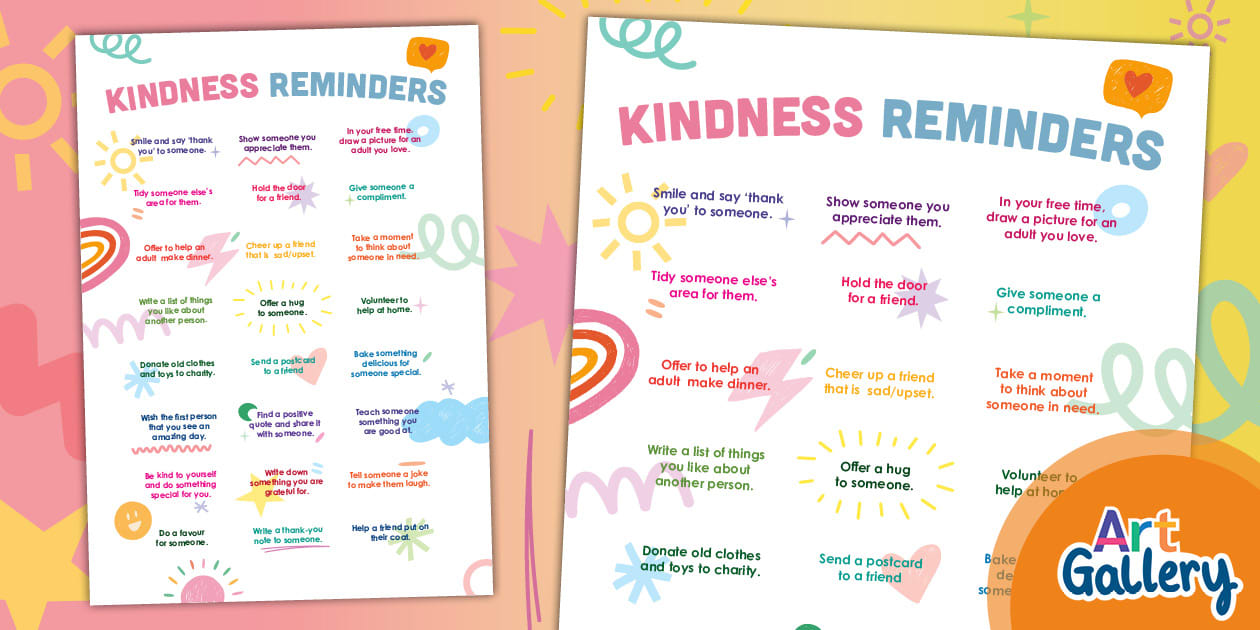 KINDNESS REMINDERS
Smile and say ‘thank
you’ to someone.
Show someone you
appreciate them.
In your free time,
draw a picture for an
adult you love.
Tidy someone else’s
area for them.
Hold the door
for a friend.
Give someone a
compliment.
Offer to help an
adult make dinner.
Cheer up a friend
that is sad/upset.
Take a moment
to think about
someone in need.
Write a list of things
you like about
another person.
Offer a hug
to someone.
Volunteer to
help at home.
Donate old clothes
and toys to charity.
Send a postcard
to a friend
Bake something
delicious for
someone special.
Wish the first person
that you see an
amazing day.
Find a positive
quote and share it
with someone.
Teach someone
something you
are good at.
Be kind to yourself
and do something
special for you.
Write down
something you are
grateful for.
Tell someone a joke
to make them laugh.
Do a favour
for someone.
Write a thank-you
note to someone.
Help a friend put on
their coat.
KINDNESS REMINDERS
Smile and say ‘thank
you’ to someone.
Show someone you
appreciate them.
In your free time,
draw a picture for an
adult you love.
Tidy someone else’s
area for them.
Hold the door
for a friend.
Give someone a
compliment.
Offer to help an
adult make dinner.
Cheer up a friend
that is sad/upset.
Take a moment
to think about
someone in need.
Write a list of things
you like about
another person.
Offer a hug
to someone.
Volunteer to
help at hom
Donate old clothes
and toys to charity.
Send a postcard
to a friend
Bake
de
some
Art
Gallery